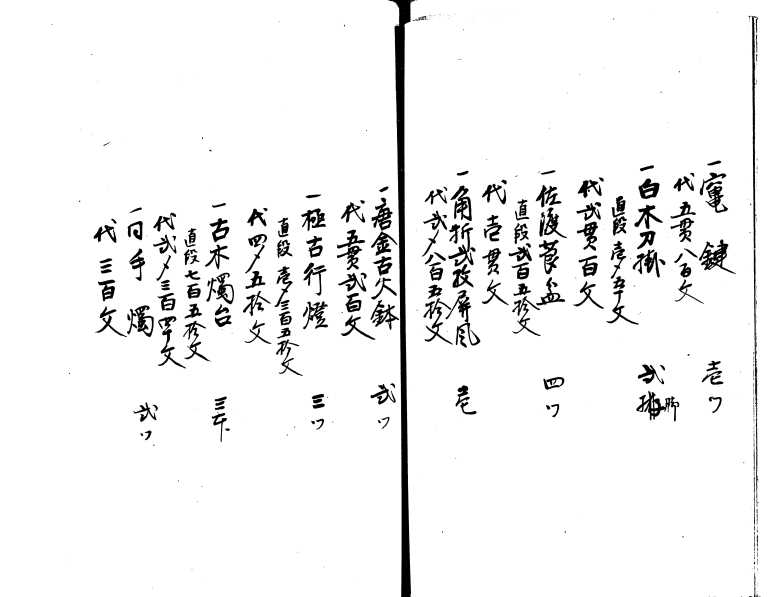 一竃鍵 壱ツ
代五貫八百文
一白木刀掛 弐脚
直段壱〆五十文
代弐貫百文
一佐渡莨盆 四ツ
直段弐百五拾文
代壱貫文
一角折弐枚屏風 壱
代弐〆八百五拾文
一唐金古火鉢 弐ツ
代五貫弐百文
一極古行燈 三ツ
直段壱〆三百五拾文
代四〆五拾文
一古木燭台 三本
直段七百五拾文
代弐〆三百四十文
一同手燭 弐ツ
代三百文